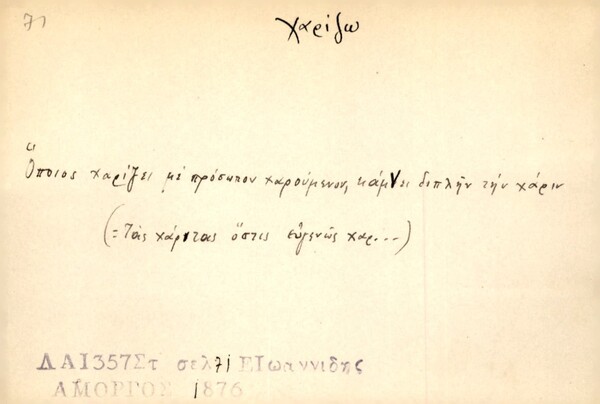 71
χαρίζω
Ὅποιος χαρίζει μὲ πρόσωπον χαρούμενον, κάμνει διπλῆν τὴν χάριν
(= Τὰς χάριτας ὅστις εὐγενῶς χαρ...)
ΛΑ1357Στ σελ71 ΕΙωαννιδης
ΑΜΟΡΓΟΣ 1876